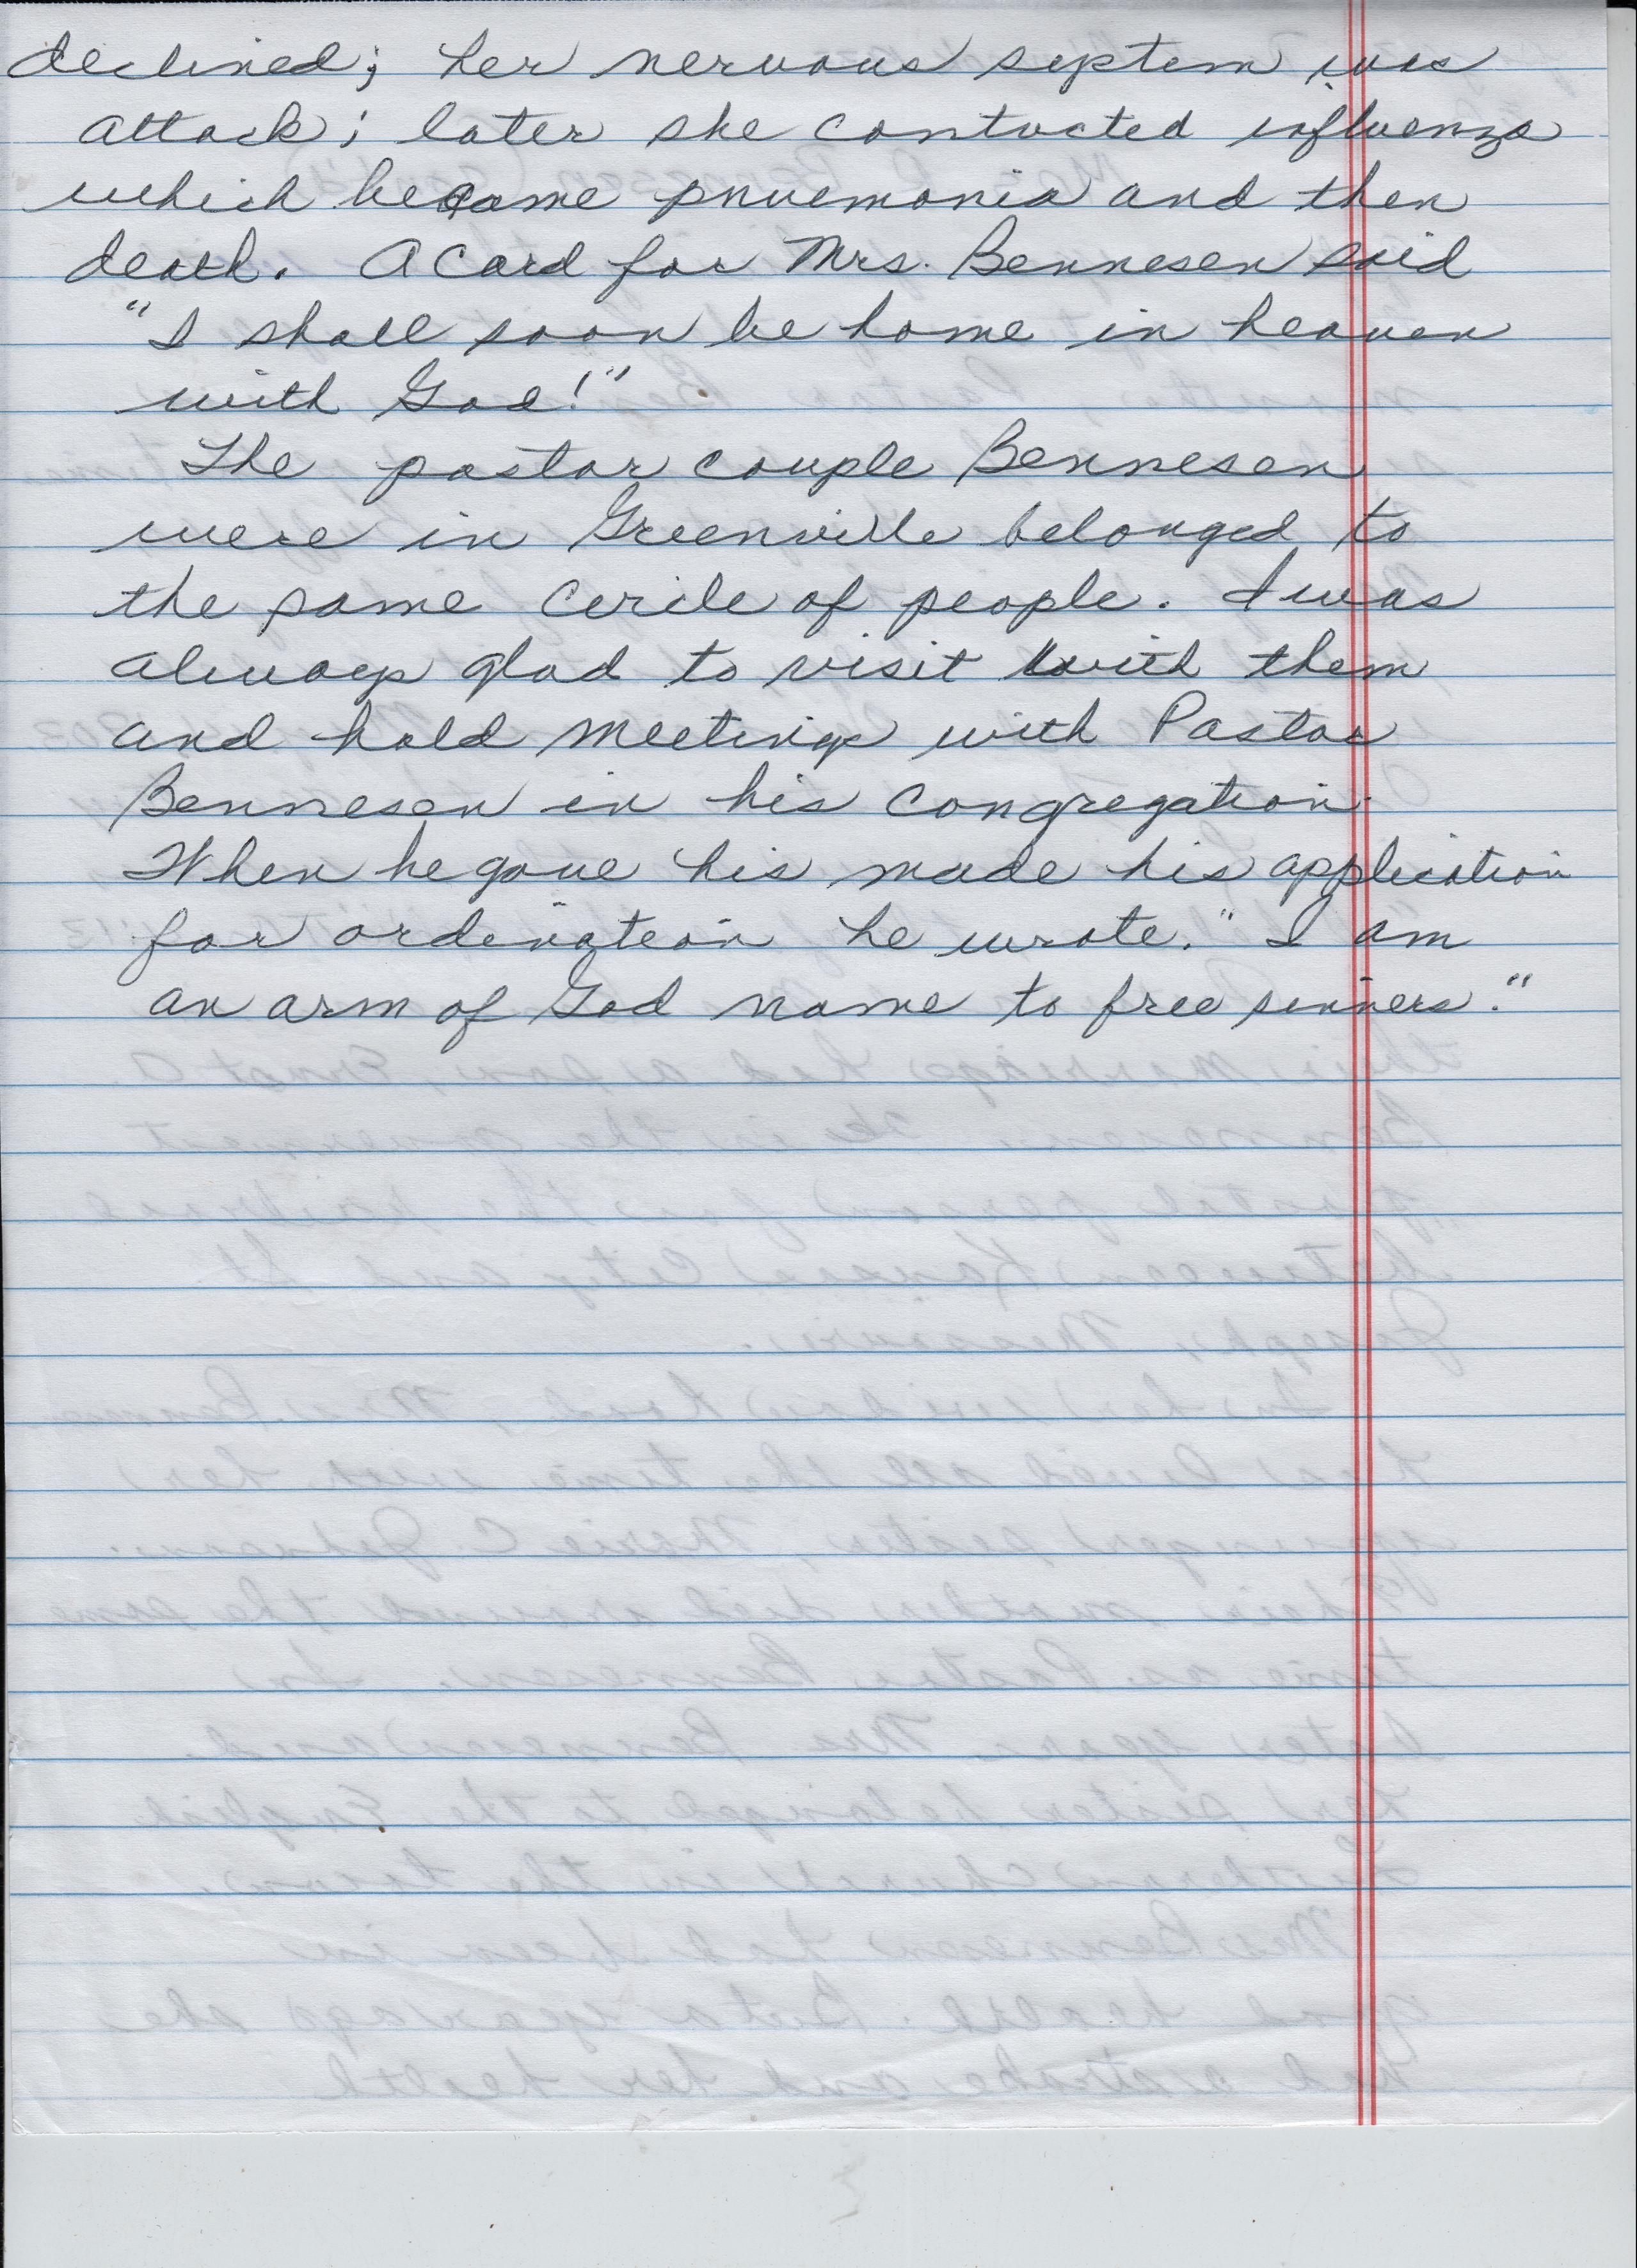 declined; her nervous system was
attack; later she contracted influenza
which became pnuemonia and then
death. A Card for Mrs. Bennesen said
"I shall soon be home in heaven
with God!"
The pastor couple Bennesen
were in Greenville belonged to
the same cercle of people. I was
always glad to visit with them
and hold meetings with Pastor
Bennesen in his congregation.
When he gave his made his application
for ordination he wrote. "I am
an arm of God name to free sinners."